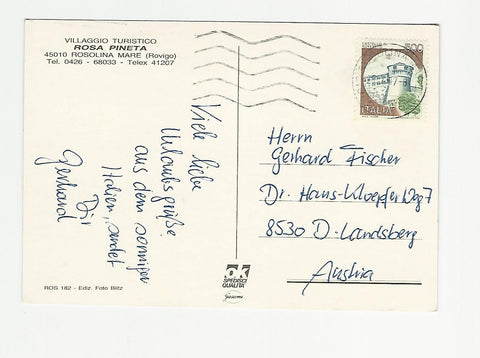 VILLAGGIO TURISTICO
ROSA PINETA
45010 ROSOLINA MARE (Rovigo)
Tel. 0426 - 68033 - Telex 41207
Viele liebe
Urlaubsgrüße
aus dem sonnigen
Italien, sendet
Dir
Gerhard
500
ITALIA
Herrn
Gerhard Fischer
Dr. Hans-Kloepfer Weg 7
8530 D. Landsberg
Austria
ok
SPEDISCI
QUALITÀ
ROS 182 - Ediz. Foto Blitz